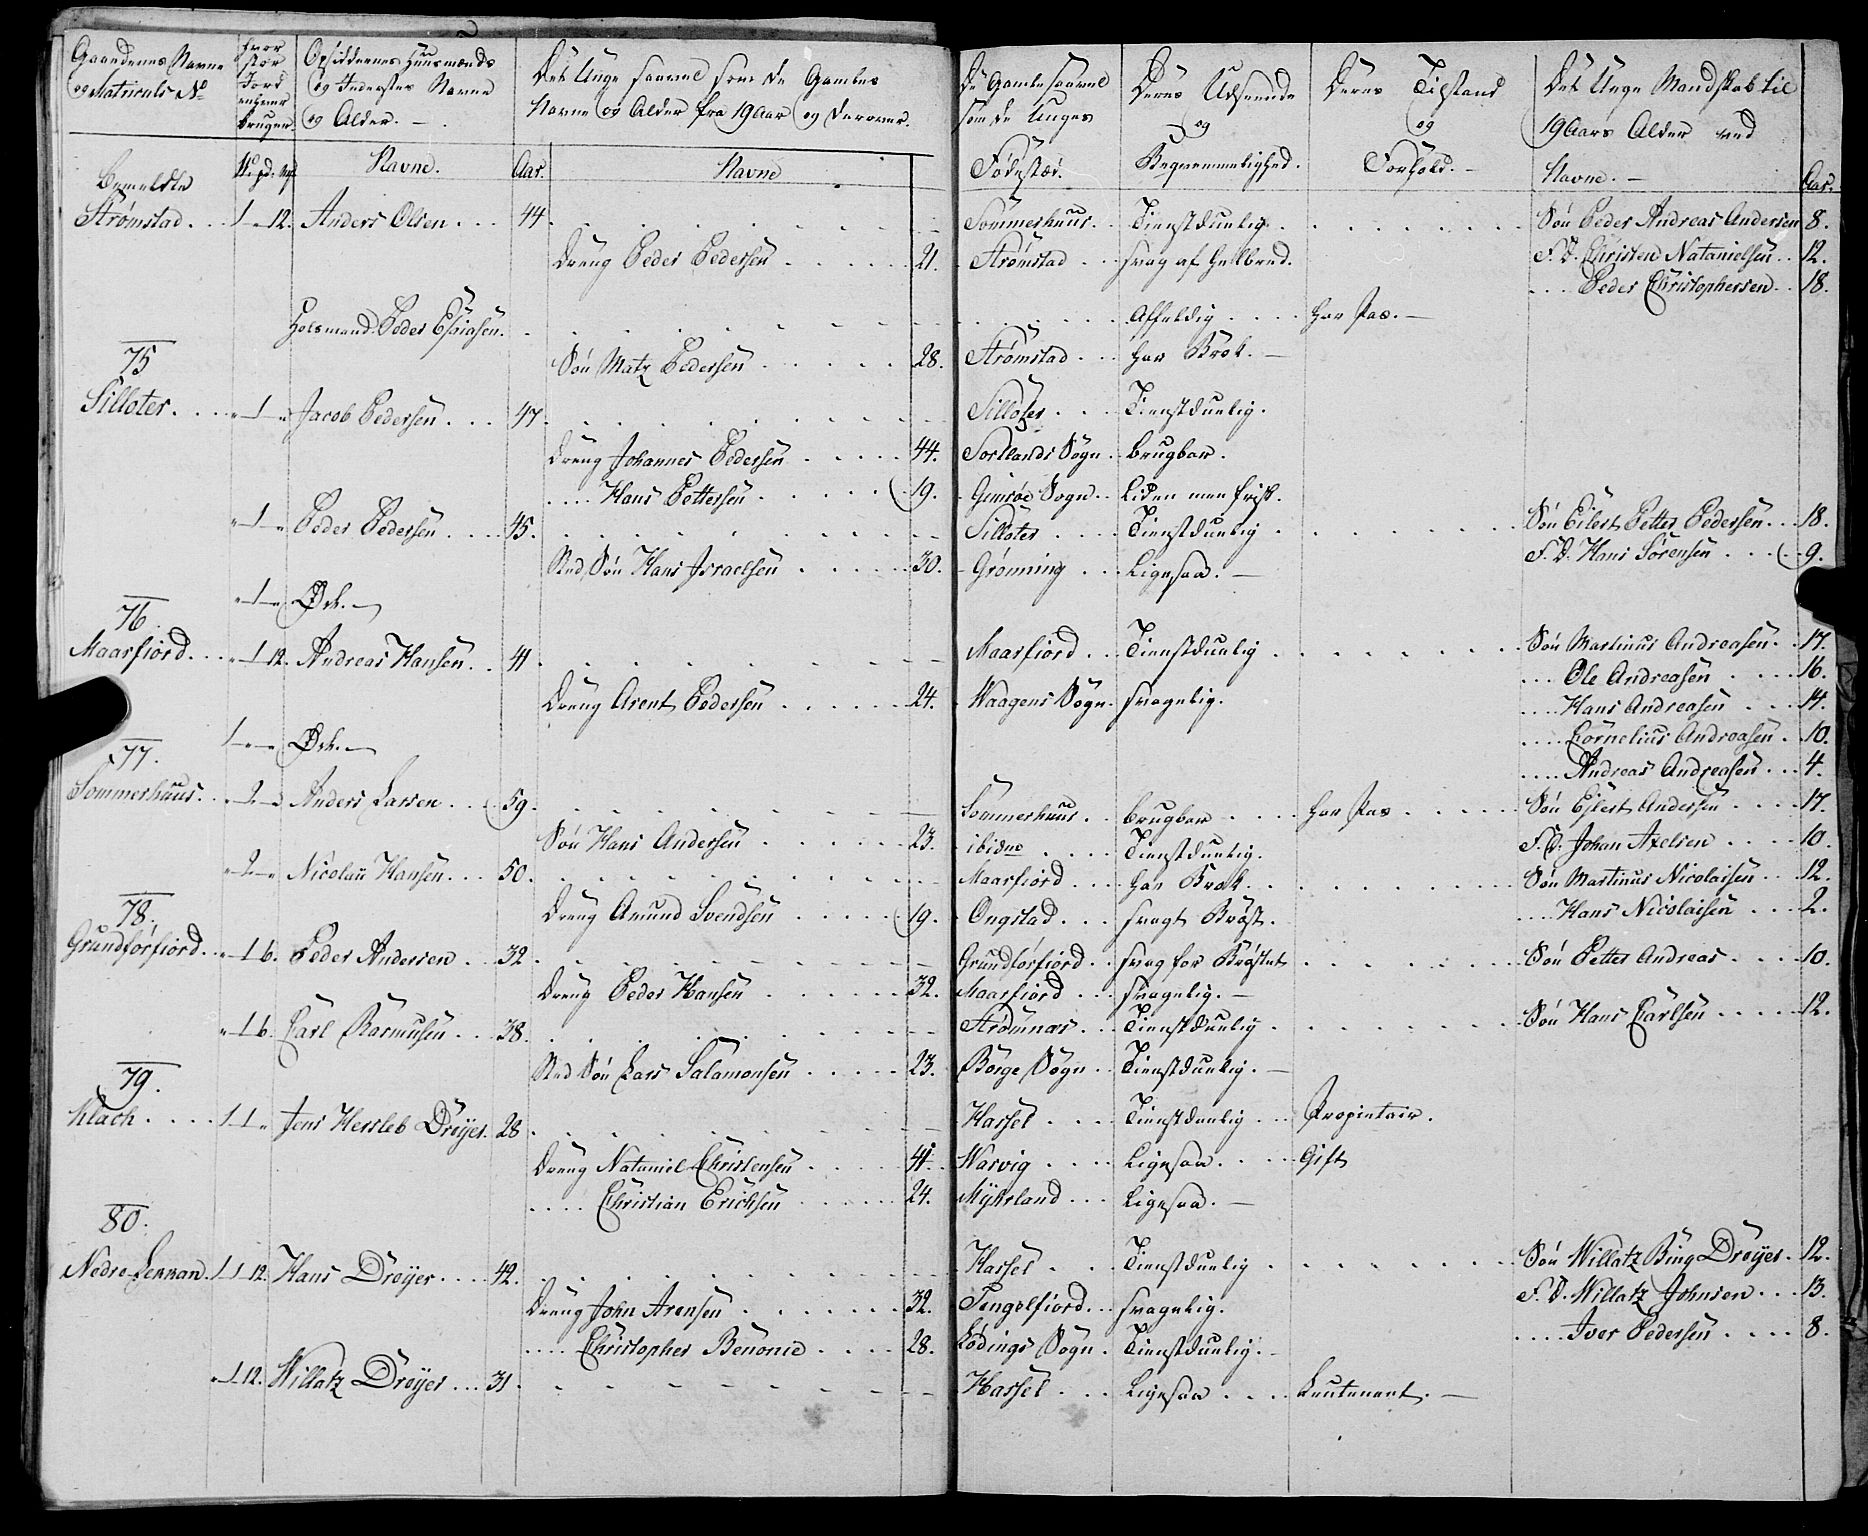 Gaardenes Navne og Matriculs No | hvor stor Jord enhver bruger. | Opsiddernes Huusmænds og Inderstes Navne og Alder. | Det Unge saavel som de Gamles Navne og Alder fra 19 Aar og derover. | De Gamle saavel som de Unges Fødested. | Deres Udseende og Beqvemmelighed. | Deres Tilstand og Forhold. | Det Unge Mandskab til 19 Aars Alder ved
Navne. | Aar. | Navne | Navne. | Aar.
bemeldte
Strømstad. 1 " 12. Anders Olsen 44 Sommerhuus. Tienstdunlig. Søn Peder Andreas Andersen 8.
Dreng Peder Pedersen 21. Strømstad svag af Helbred. F. D. Christen Natanielsen 12.
Peder Christophersen 18.
Holsmand Peder Esaiasen. Affeldig har Pas.
75
Søn Matz Pedersen 28. Strømstad har Brok.
Silloter. " 1 " Jacob Pedersen 47 Silloter Tienstdunlig.
Dreng Johannes Pedersen 44. Sortlands Sogn. brugbar.
Hans Pettersen 19. Gimsøe Sogn. Liden men frisk.
" 1 " Peder Pedersen 45. Silloter Tienstdunlig Søn Eilert Petter Pedersen 18.
Sted Søn Hans Israelsen 30. Grønning Ligesaa. F. D. Hans Sørensen 9.
" 1 " Øde.
76.
Maarfiord. " 1 12. Andreas Hansen 41 Maarfiord Tienstdunlig Søn Martinus Andreasen 17.
Ole Andreasen 16.
Dreng Arent Pedersen 24. Waagens Sogn. svagelig. Hans Andreasen 14.
1 " " Øde. Cornelius Andreasen 10.
77. Andreas Andreasen 4.
Sommerhuus. " 2 " Anders Larsen 59. Sommerhuus. brugbar har Pas Søn Ejlert Andersen 17.
Søn Hans Andersen 23. ibidm Tienstdunlig. F. D. Johan Axelsen 10.
" 2 " Nicolau Hansen 50. Maarfiord har Brok. Søn Martinus Nicolaisen 12.
78. Dreng Amund Svendsen 19. Ongstad svagt Bryst. Hans Nicolaisen 2.
Grundforfiord. " 1 6. Peder Andersen 32 Grundforfiord svag for Brystet Søn Petter Andreas 10.
Dreng Peder Hansen 32. Maarfiord svagelig.
" 1 6. Carl Rasmusen 38. Strømnæs Tienstdunlig Søn Hans Carlsen 12.
79. Sted Søn Lars Salamonsen 23. Borge Sogn Tienstdunlig.
Klack 1 1 " Jens Hersleb Dreyer 28 Hassel Tienstdunlig Propietair.
Dreng Nataniel Christensen 41. Warvig Ligesaa. Gift
Christian Erichsen 24. Myhrland Ligesaa.
80.
Nedre Lekkan. 1 1 12. Hans Dreyer 42. Hassel Tienstdunlig Søn Willatz Bing Dreyer 12.
Dreng John Arensen 32. Tengelfiord svagelig. F. D. Willatz Johnsen 13.
Christopher Benonie 28. Lødings Sogn. Tienstdunlig. Iver Pedersen 8.
" 1 12. Willatz Dreyer 31 Hassel Ligesaa Leutenant.